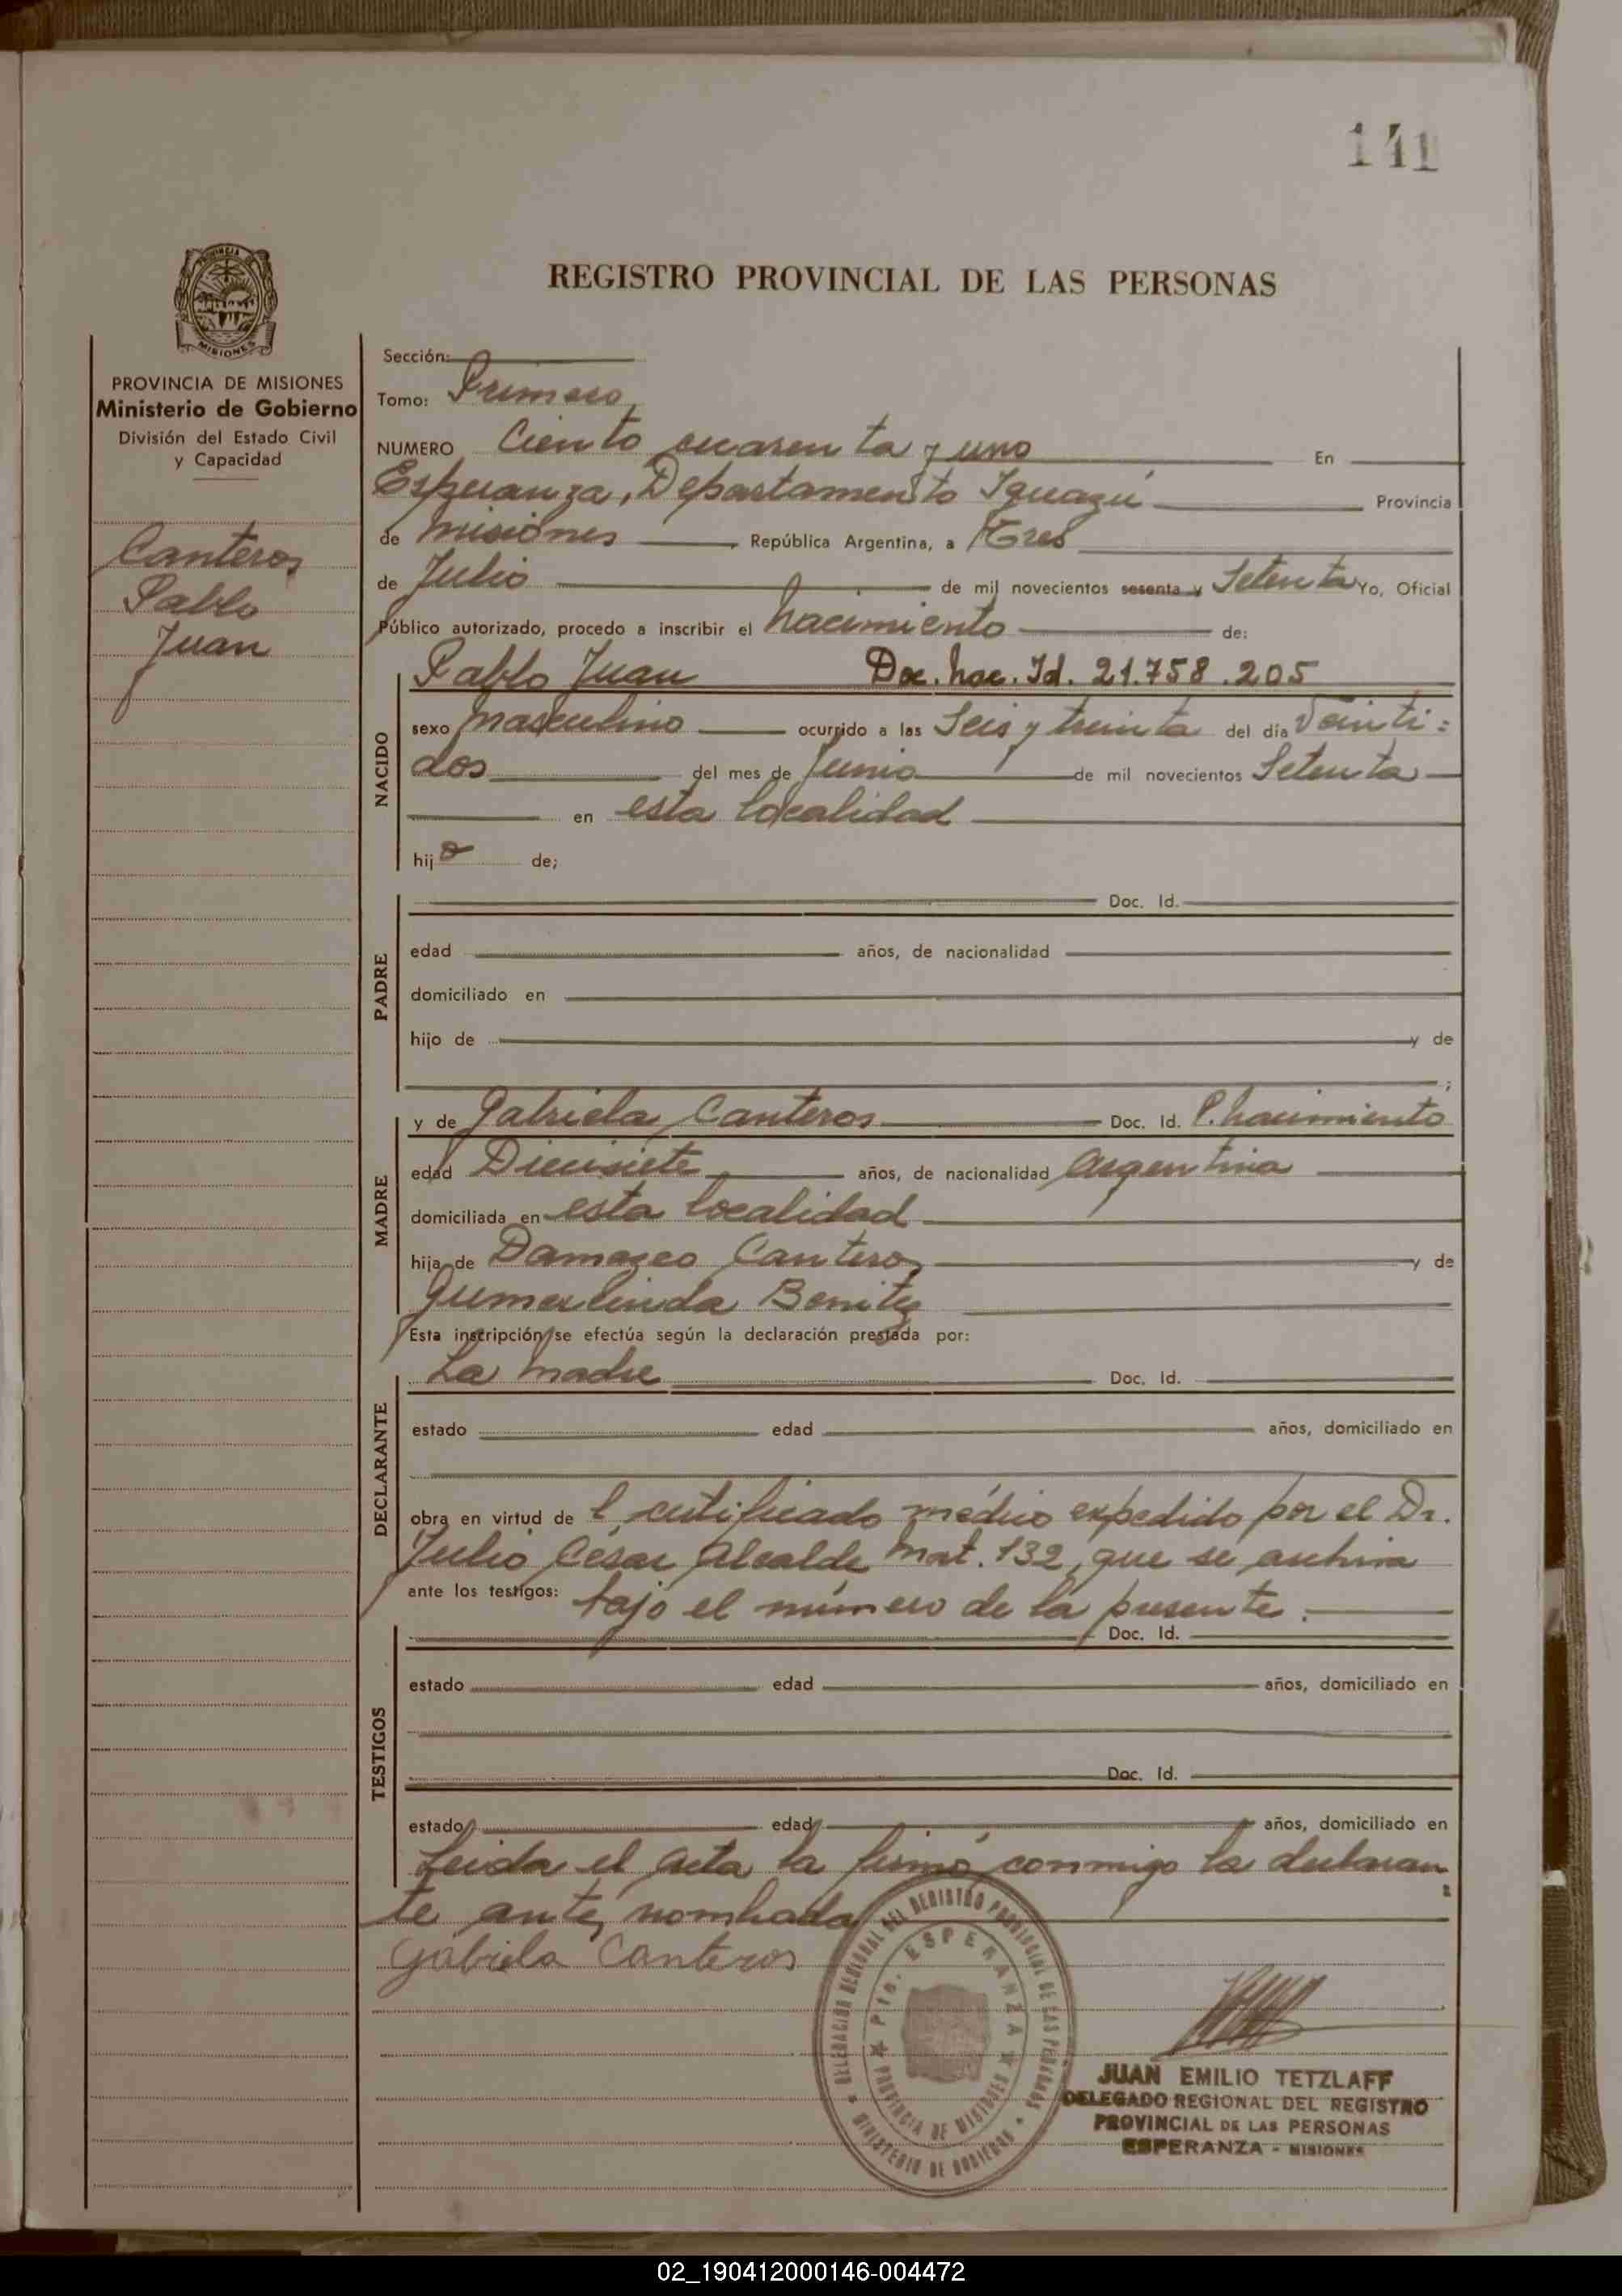 141
PROVINCIA DE
MISIONES
REGISTRO PROVINCIAL DE LAS PERSONAS
PROVINCIA DE MISIONES
Ministerio de Gobierno
División del Estado Civil
y Capacidad
Canteros
Pablo
Juan
Sección:
Tomo: Primero
NUMERO Ciento cuarenta y uno En
Esperanza, Departamento Iguazú Provincia
de Misiones República Argentina, a Tres
de Julio de mil novecientos sesenta y Setenta Yo, Oficial
Público autorizado, procedo a inscribir el Nacimiento de:
NACIDO
Pablo Juan Doc. Nac. Id. 21.758.205
sexo Masculino ocurrido a las Seis y treinta del día Veinti:
dos del mes de Junio de mil novecientos Setenta
en esta localidad
hijo de;
PADRE
Doc. Id.
edad años, de nacionalidad
domiciliado en
hijo de y de
;
MADRE
y de Gabriela Canteros Doc. Id. P. Nacimiento
edad Diecisiete años, de nacionalidad Argentina
domiciliada en esta localidad
hija de Damaseo Canteros y de
Gumerlinda Benitez
Esta inscripción se efectúa según la declaración prestada por:
DECLARANTE
La Madre Doc. Id.
estado edad años, domiciliado en
obra en virtud de l certificado médico expedido por el Dr.
Julio César Alcalde Mat. 132, que se archiva
ante los testigos: bajo el número de la presente.
TESTIGOS
Doc. Id.
estado edad años, domiciliado en
Doc. Id.
estado edad años, domiciliado en
Leida el acta la firmó conmigo la declaran
te ante nombrada
Gabriela Canteros
DELEGACION REGIONAL DEL REGISTRO PROVINCIAL DE LAS PERSONAS
Pto. ESPERANZA
PROVINCIA DE MISIONES
MINISTERIO DE GOBIERNO
JUAN EMILIO TETZLAFF
DELEGADO REGIONAL DEL REGISTRO
PROVINCIAL DE LAS PERSONAS
ESPERANZA - MISIONES
02_190412000146-004472